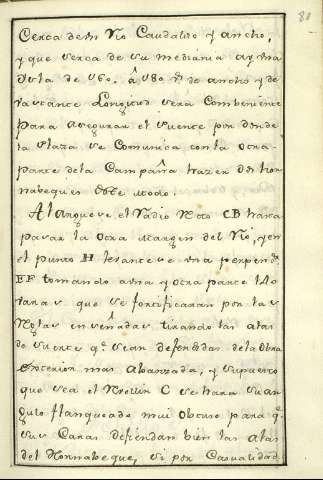 80
Cerca de Vn Rio Caudaloso y ancho,
y que cerca de su mediania ay vna
Ysla de 160. â 180 Vs de ancho y de
bastante Longitud sera Combeniente
para asegurar el Puente por donde
la Plaza se Comunica con la otra
parte dela Campaña hazer dos hor
nabeques de este modo.
Alarguese el Radio Recto CB hasta
pasar la otra margen del Rio, y en
el punto H lebantese vna perpendr
EF tomando a vna y otra parte 120
varas que se fortificaran por las
Reglas enseñadas tirando las alas
de suerte qe sean defendidas dela obra
Exterior mas abanzada, y supuesto
que sea el Rebellin C se hara su an
gulo flanqueado mui obtuso para qe
sus Caras defiendan bien las alas
del Hornabeque, si por Casualidad